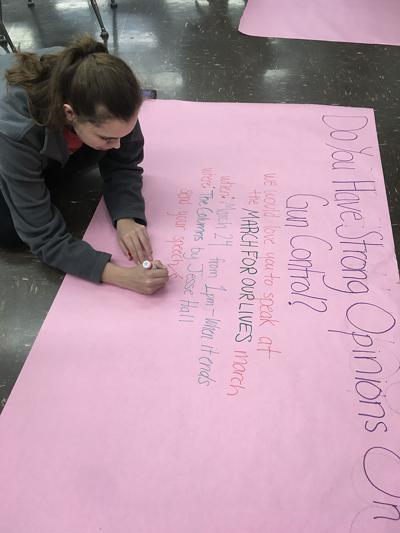 Do You Have Strong Opinions On
Gun Control?
we would love you to speak at
the MARCH FOR OUR LIVES march
when: March 24 from 1pm-When it ends
where: The Columns by Jesse Hall
send your speech